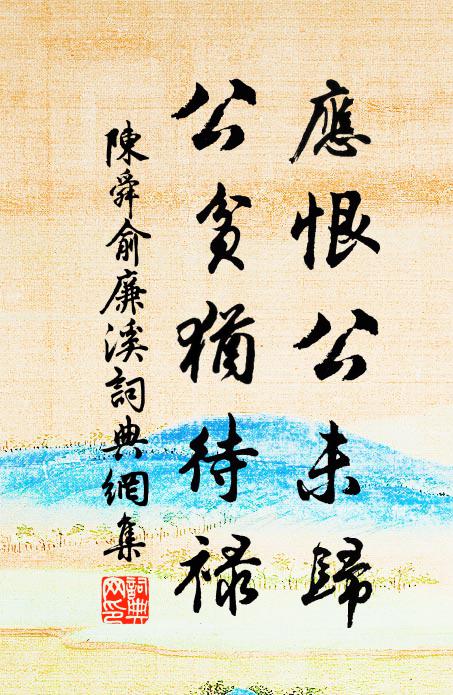 應恨公未歸
公貧猶待祿
陳舜俞廉溪詞典網集
詞典網印